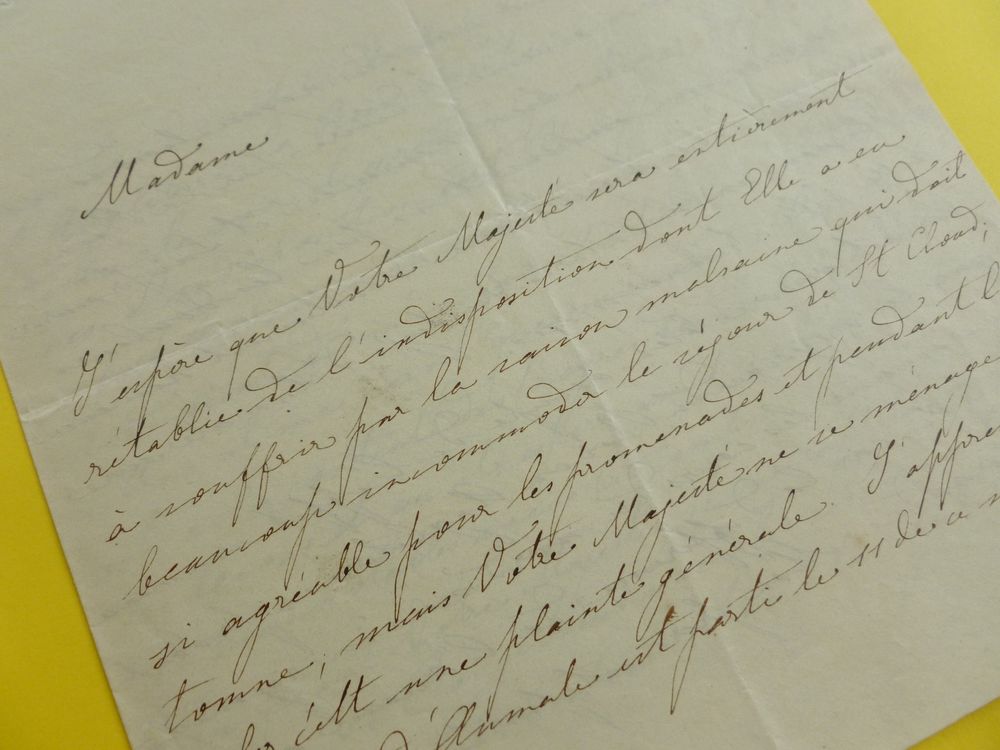 Madame
J'espère que Votre Majesté sera entièrement
rétablie de l'indisposition dont Elle a eu
à souffrir par la saison malsaine qui doit
beaucoup incommoder le séjour de St Cloud,
si agréable pour les promenades et pendant l
tomne, mais Votre Majesté ne se ménage
c'est une plainte générale. J'appre
d'Aumale est parti le 11 de ce m